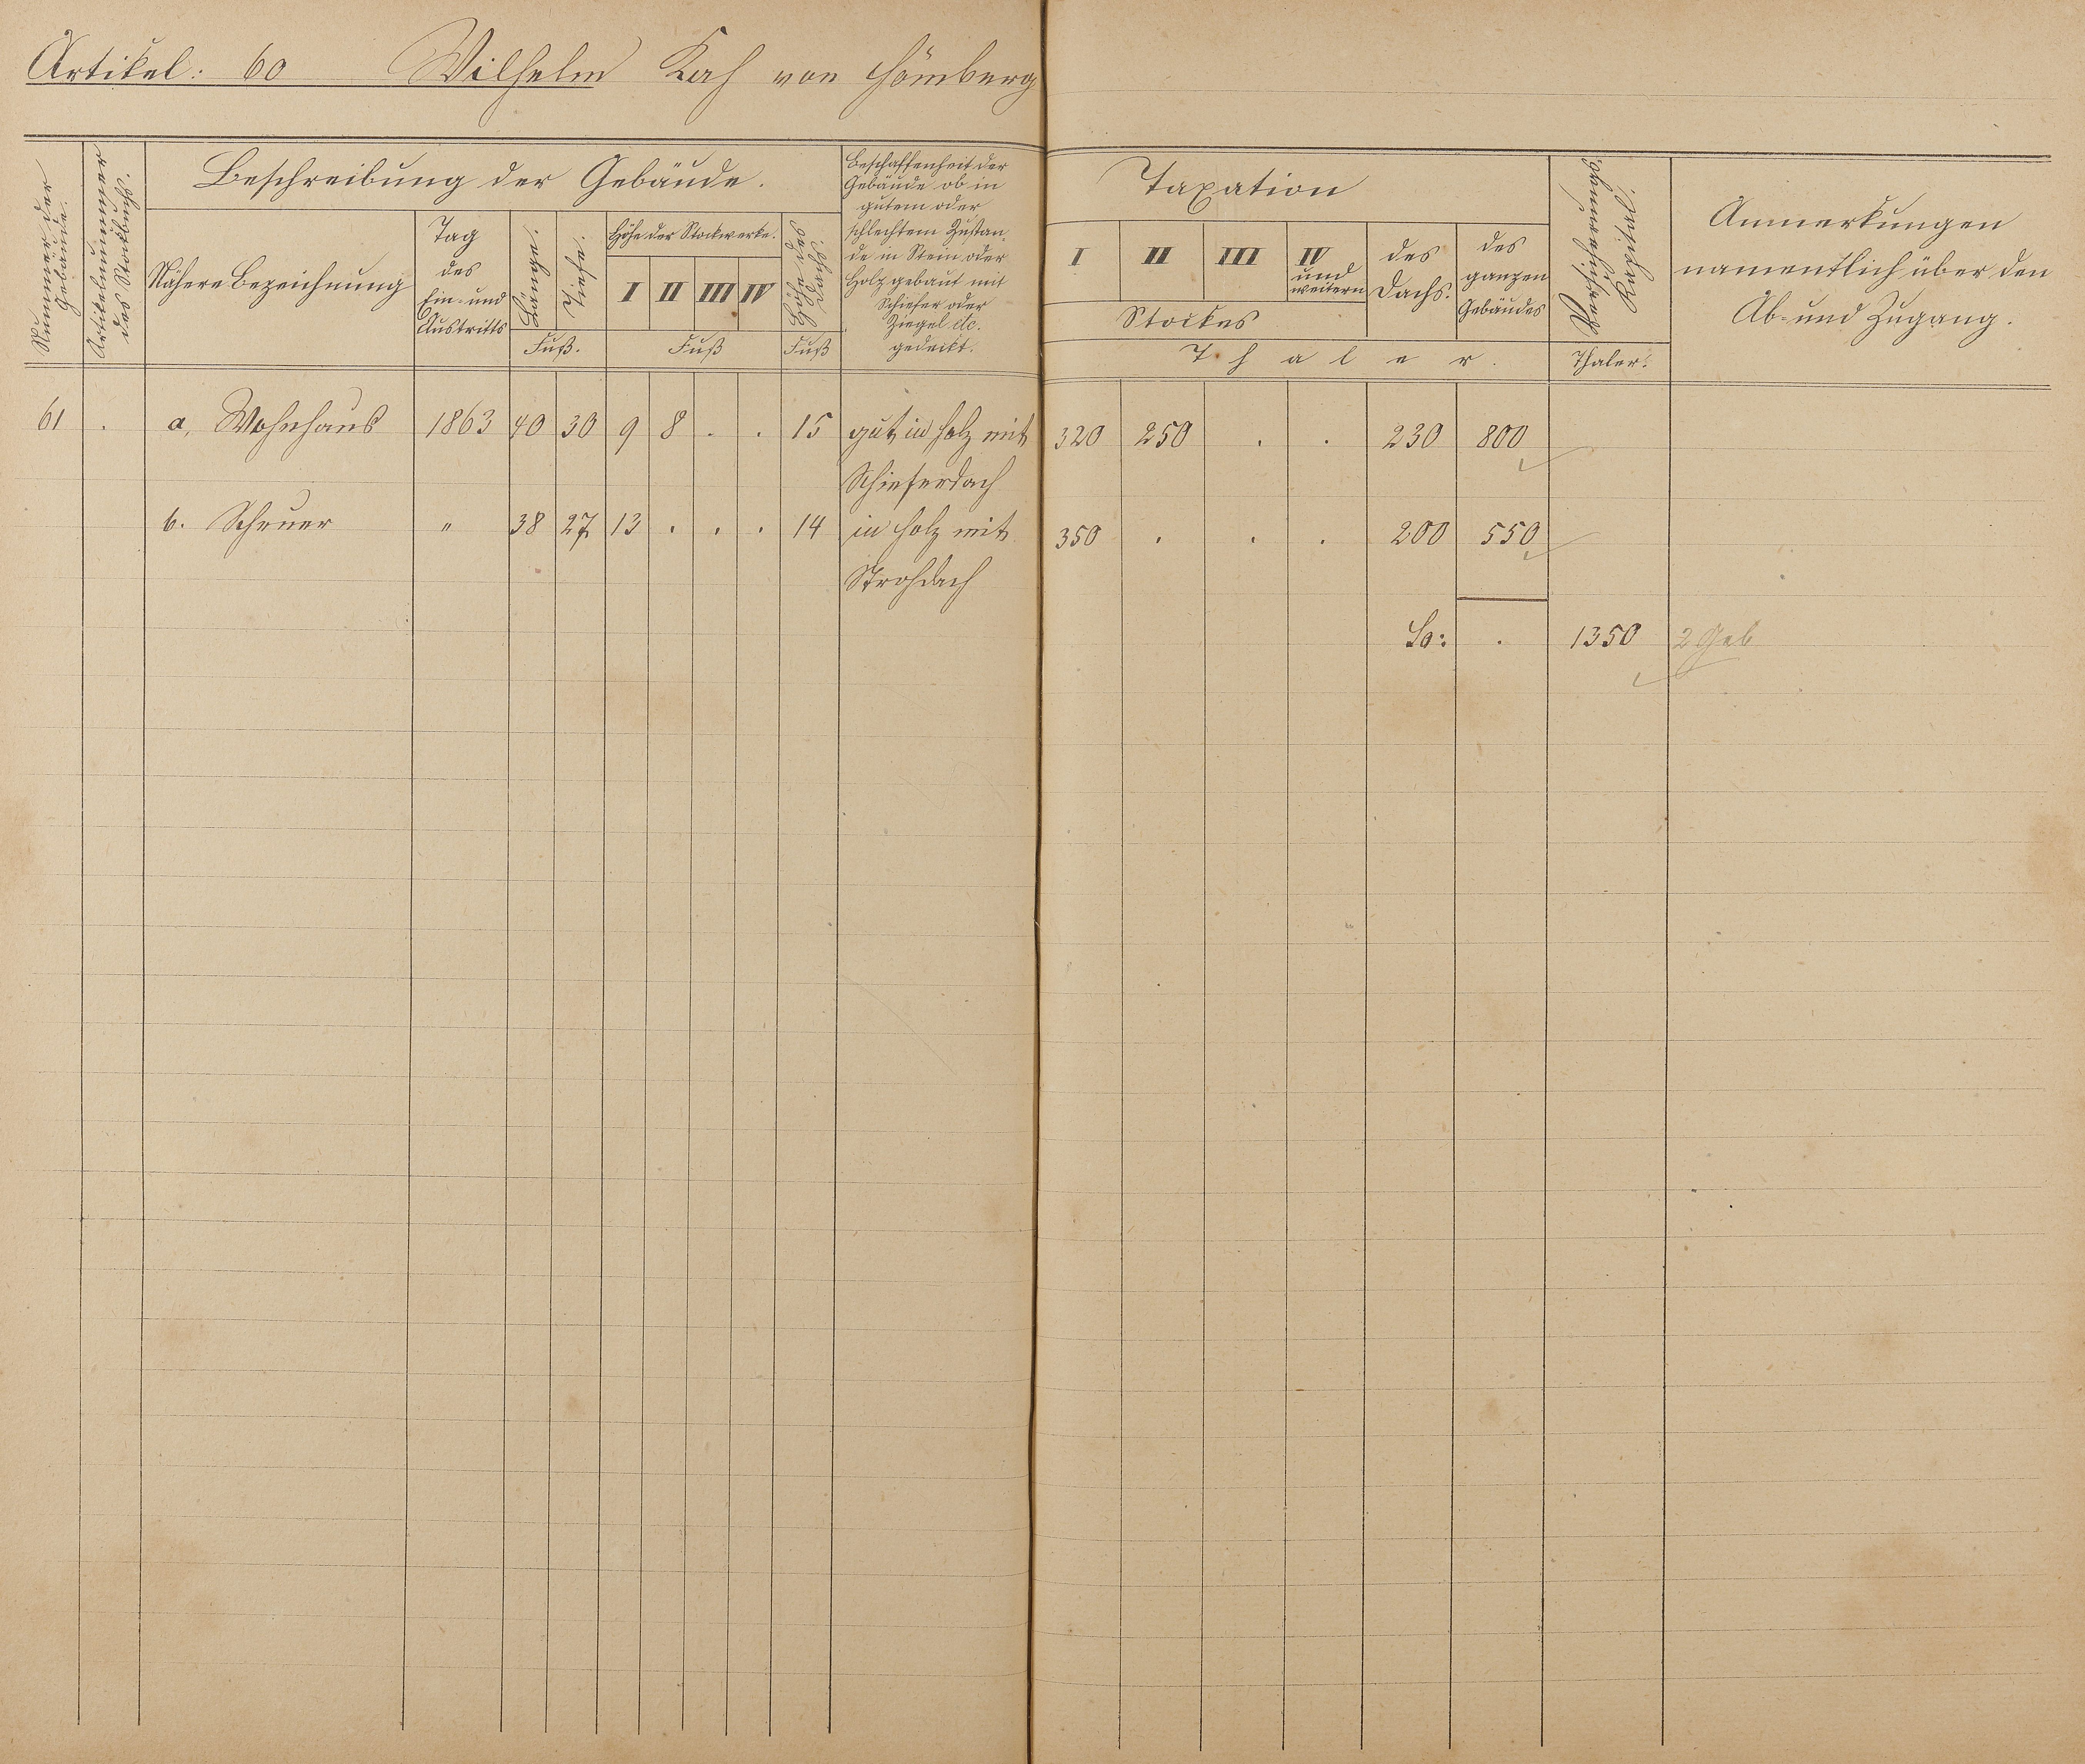 Artikel: 60 Wilhelm Kah von Hömberg
Nummer der Gebäude.
Artikelnummer des Stockbuchs.
Beschreibung der Gebäude.
Nähere Bezeichnung
Tag
des
Ein- und
Austritts
Länge.
Tiefe.
Fuß.
Höhe der Stockwerke.
I II III IV
Fuß
Höhe des Dachs.
Fuß
Beschaffenheit der
Gebäude ob in
gutem oder
schlechtem Zustan-
de in Stein oder
Holz gebaut mit
Schiefer oder
Ziegel etc.
gedeckt.
Taxation
I II III IV
und
weitern
Stockes
des
Dachs.
des
ganzen
Gebäudes
Thaler.
Versicherungs-
Kapital.
Thaler.
Anmerkungen
namentlich über den
Ab- und Zugang.
61 . a, Wohnhaus 1863 40 30 9 8 . . 15 gut in Holz mit 320 250 . . 230 800
Schieferdach
b. Scheuer " 38 27 13 . . . 14 in Holz mit 350 . . . 200 550
Strohdach
Sa: . 1350 2 Geb